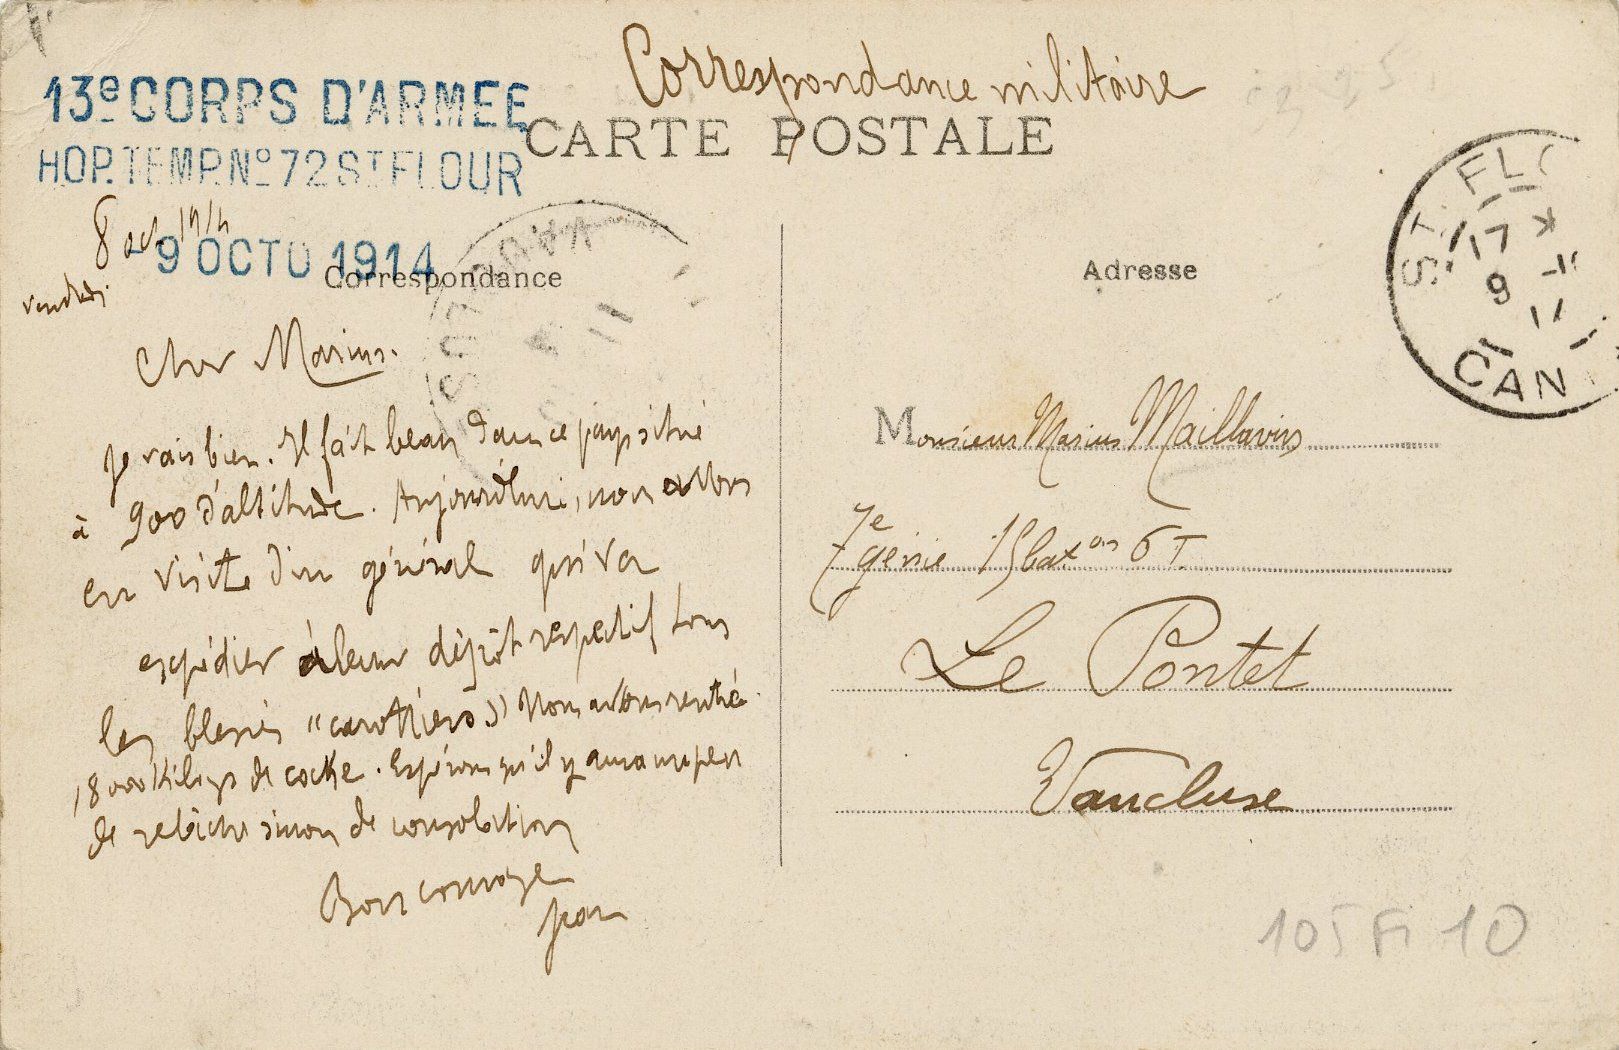 Correspondance militaire
13e CORPS D'ARMEE
CARTE POSTALE
HOP. TEMP. No 72 ST FLOUR
8 oct 1914
- 9 OCTO 1914
Correspondance
Adresse
vendredi
VAUCLUSE
ST. FLO
17
9
CAN
Cher Marius.
je vais bien. Il fait beau dans ce pays situé
à 900 d'altitude. Aujourd'hui, nous allons
en visite d'un général qui va
expédier à leur dépôt respectif tous
les blessés "carottiers" Nous avons rentré
18000 kilogs de coke. Espérons qu'il y aura un peu
de relâche sinon de consolation
Bon courage
Jean
Monsieur Marius Maillavin
7e génie 15 baton 6 T
Le Pontet
Vaucluse
105 Fi 10